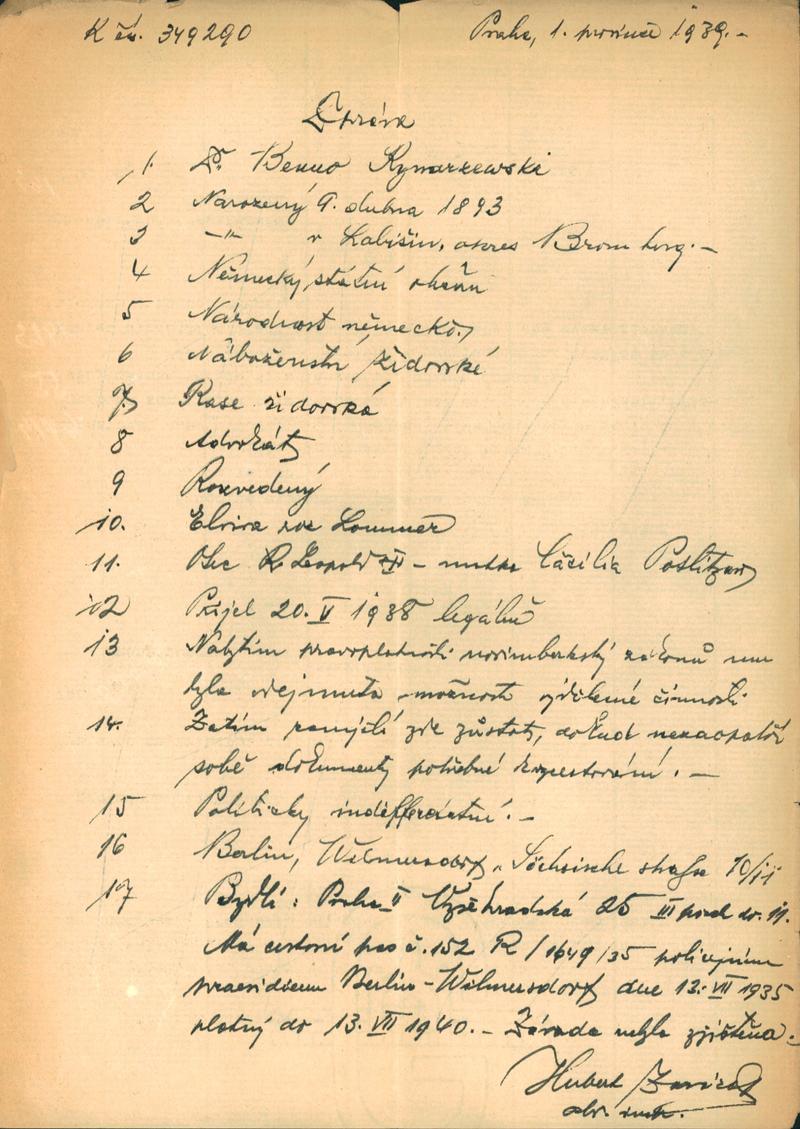 K čís. 349290
Praha, 1. prosince 1939.-
Zpráva
1. Dr. Benno Rynarzewski
2 Narozený 9. dubna 1893
3 -"- v Labišin, okres Bromberg.-
4 Německý státní občan
5 Národnost německá
6 Náboženství židovské
7 Rase židovská
8 Advokát
9 Rozvedený
10. Elvira roz Lommer
11. Otec Leopold - matka Cäcilia
12 Přijel 20. V 1938 legálně
13 Nabytím pravoplatnosti norimberský zákonů mu
byla odejmuta možnost výdělečné činnosti
14. Zatím zamýšlí zde zůstati, dokud nezaopatří
sobě dokumenty potřebné k vycestování. -
15 Politicky indifferentní. -
16 Berlin, Wilmersdorf, Sächsische strasse 10/II
17 Bydlí: Praha II Vyšehradská 25 III posch. 
Má cestovní pas č. 152 R/1649/35 policejním
praesidium Berlin-Wilmersdorf dne 13. VII 1935
platný do 13. VII 1940. - Závada nebyla zjištěna.
Hubert